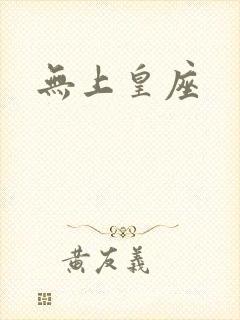 無上皇座
黄友義